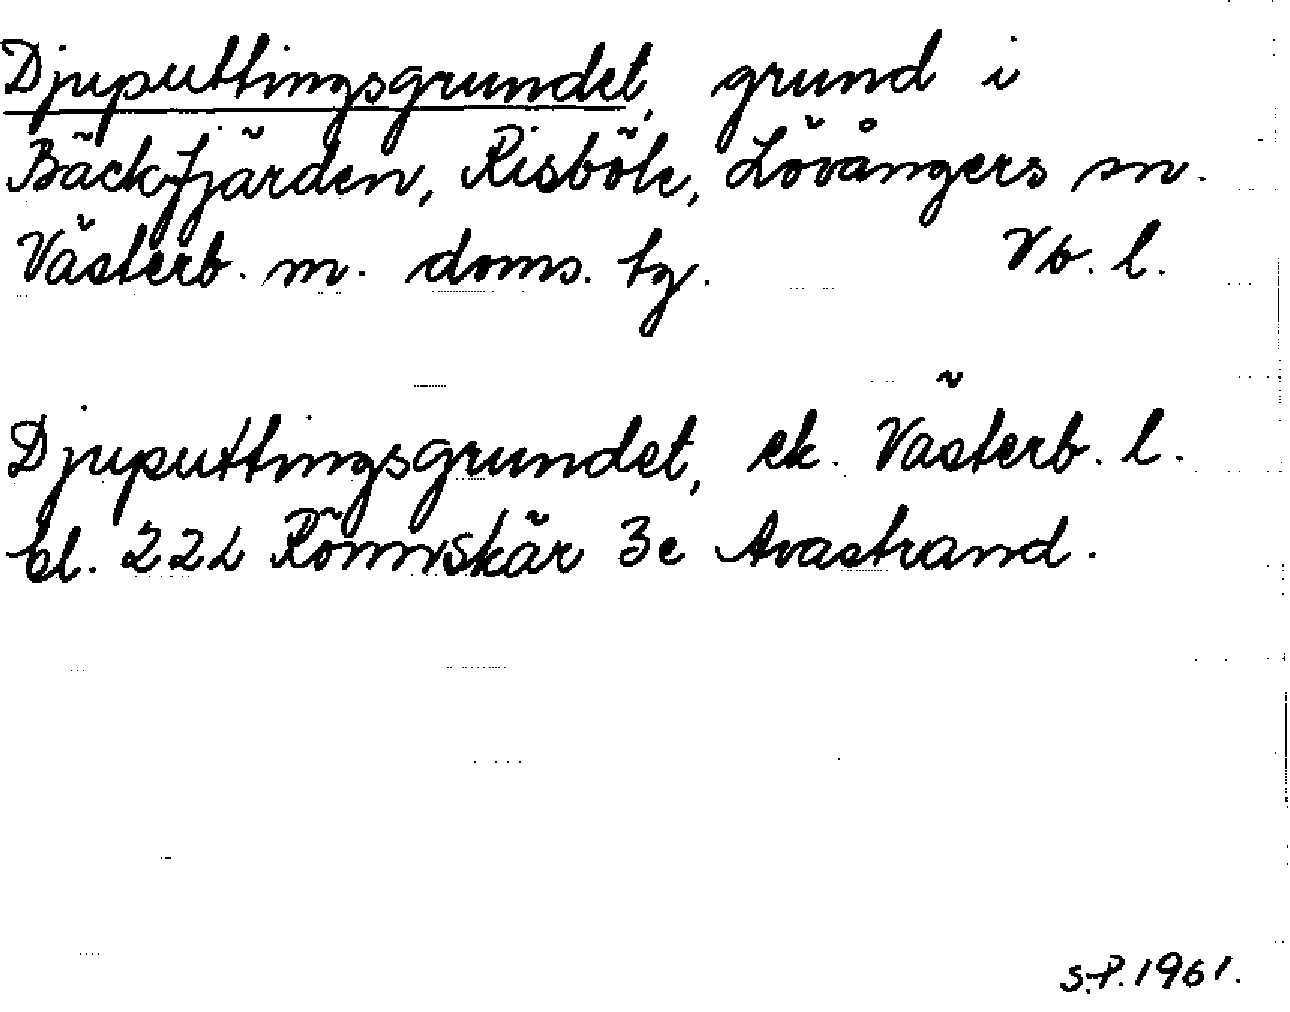 Djuputtingsgrundet, grund i
Bäckfjärden, Risböle, Lövångers sn.
Västerb. m. doms. tg. Vb. l.
Djuputtingsgrundet, ek. Västerb. l.
bl. 222 Rönnskär 3e Avastrand.
S.P. 1961.